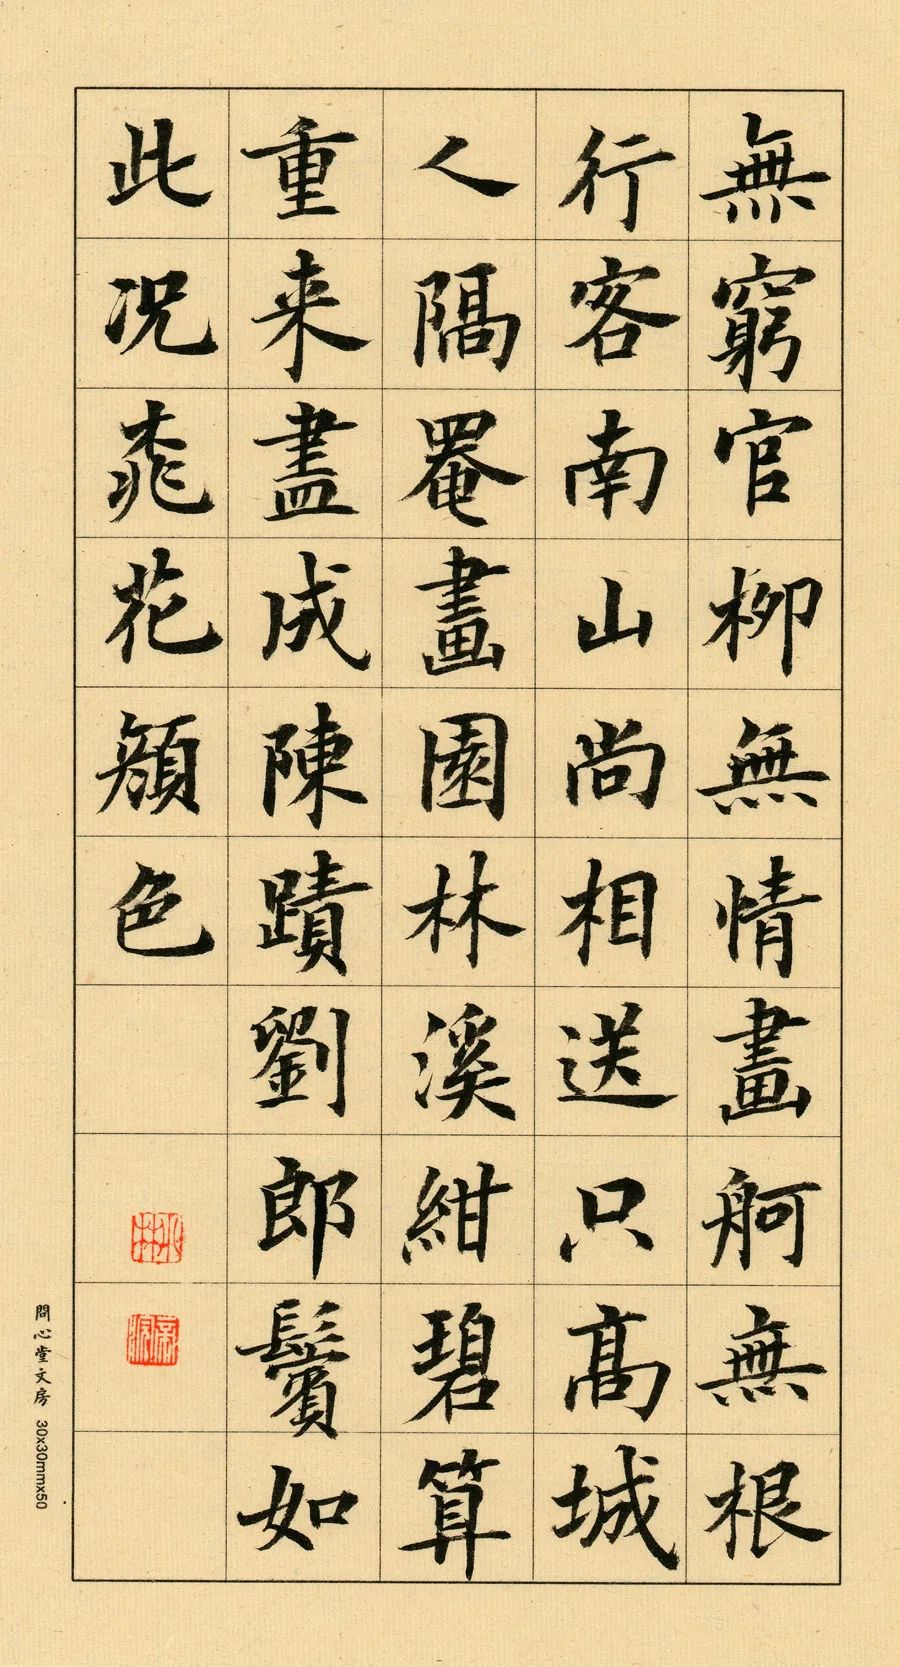 無窮官柳無情畫舸無根
行客南山尚相送只高城
人隔罨畫園林溪紺碧算
重来盡成陳蹟劉郎鬢如
此况桃花顔色
問心堂文房 30x30mmx50